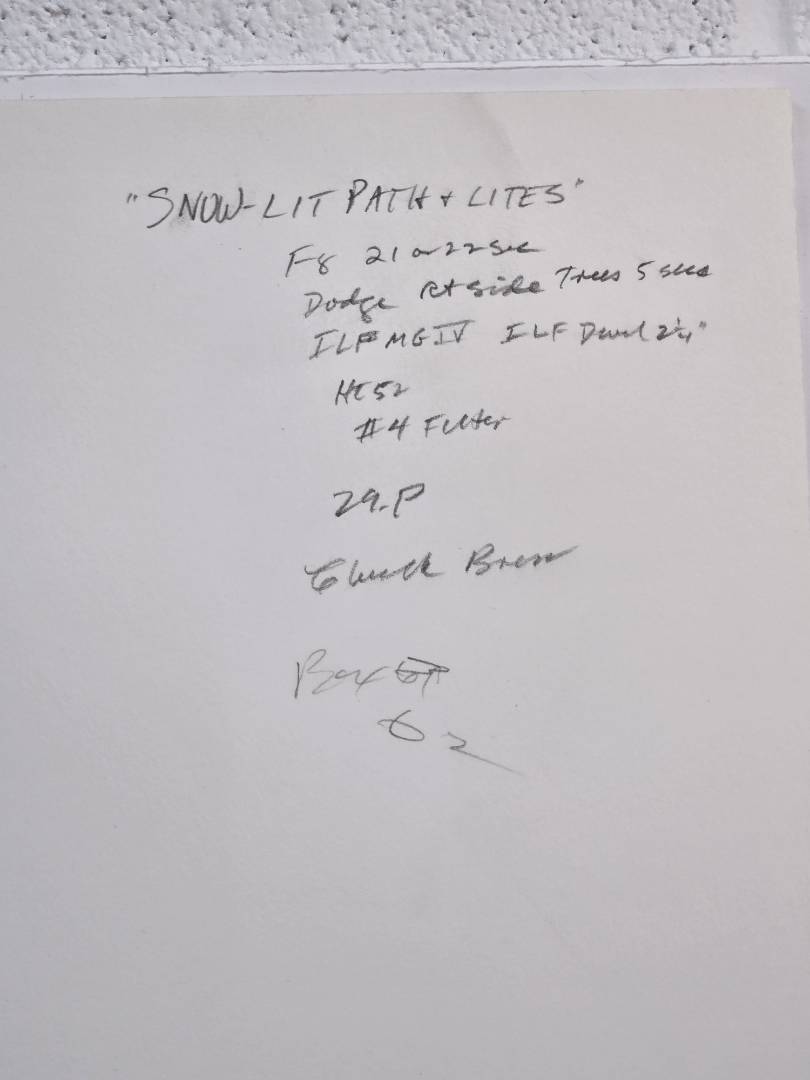 "SNOW-LIT PATH + LITES"
F8 21 or 22 sec
Dodge Rt side Trees 5 secs
ILF MG IV ILF Devel 2 1/4"
#4 Filter
29.P
Chuck
Box
62